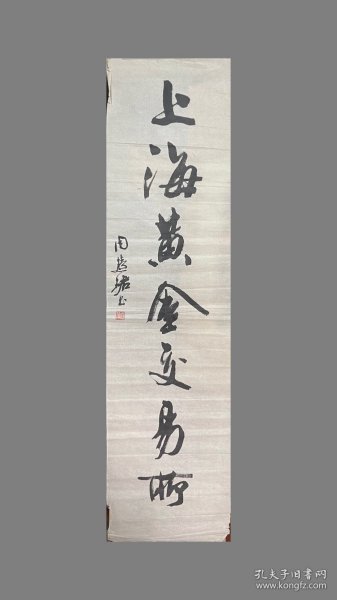 上海黄金交易所
周慧珺书
孔夫子旧书网
www.kongfz.com